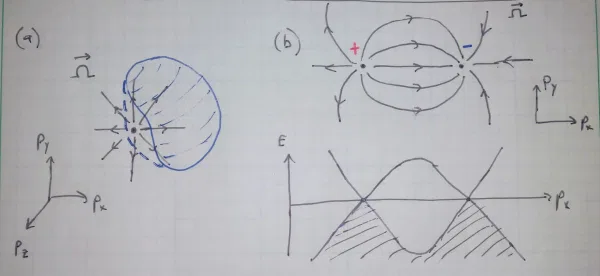 (a)
Ω
Py
Px
Pz
(b)
+
-
Ω
Py
Px
E
Px